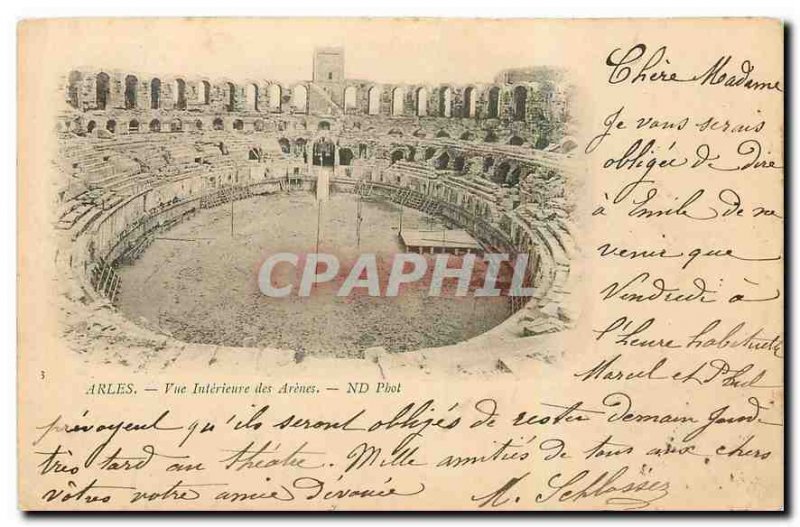 Chère Madame
Je vous serais
obligée de dire
à Emile de ne
venir que
Vendredi à
l'heure habituelle
Marcel et Phil
CPAPHIL
3
ARLES. — Vue Intérieure des Arènes. — ND Phot
prévoyent qu'ils seront obligés de rester demain Jeudi
très tard au théâtre. Mille amitiés de tous aux chers
vôtres votre amie dévouée
M. Schlosser